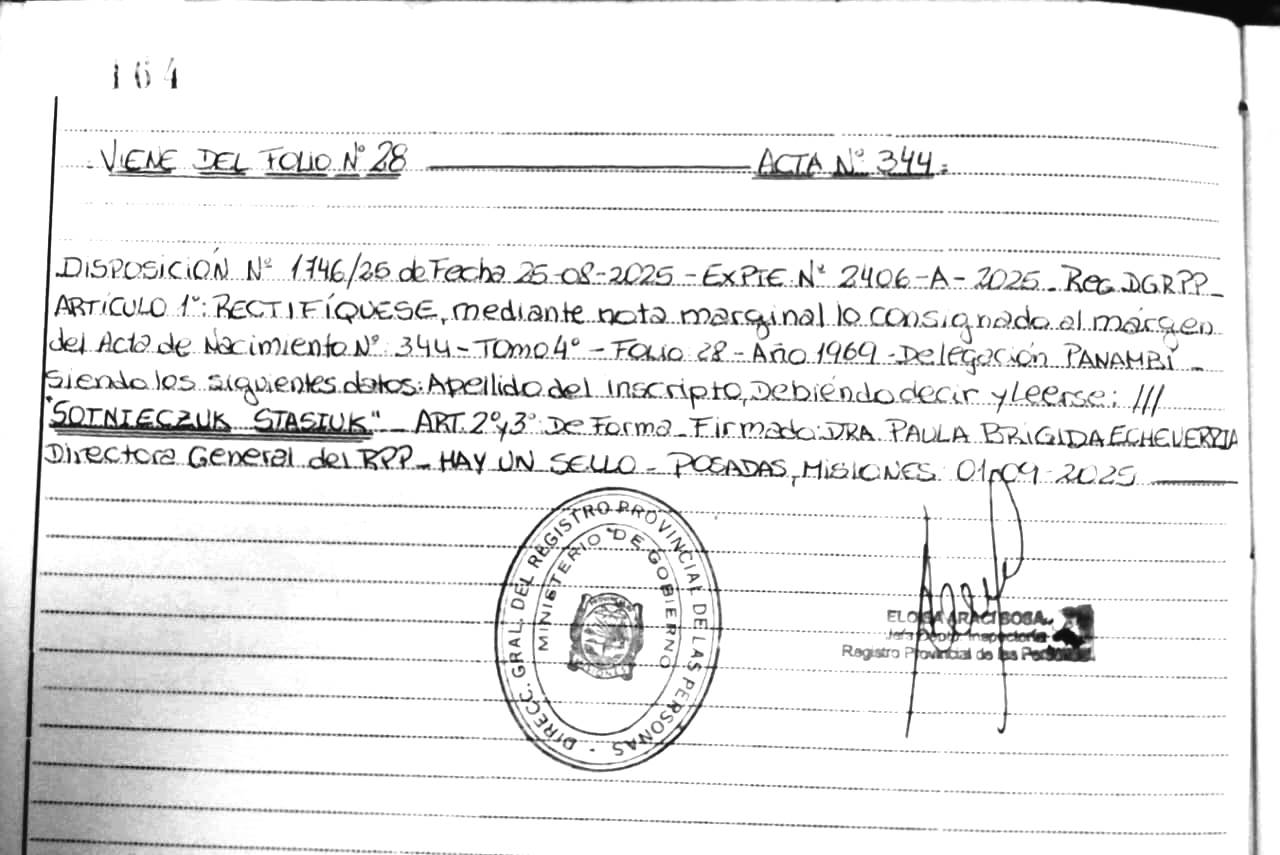 164
VIENE DEL FOLIO Nº 28 ACTA Nº 344.
DISPOSICIÓN Nº 1746/25 de Fecha 25-08-2025 - EXPTE. Nº 2406-A-2025. Reg. D.G.R.P.P.-
ARTÍCULO 1º: RECTIFÍQUESE, mediante nota marginal lo consignado al márgen
del Acta de Nacimiento Nº 344 - Tomo 4º - Folio 28 - Año 1969 - Delegación PANAMBÍ -
siendo los siguientes datos: Apellido del inscripto, Debiéndo decir y Leerse: ///
"SOTNIECZUK STASIUK" - ART. 2º y 3º: De Forma - Firmado: DRA. PAULA BRIGIDA ECHEVERRIA
Directora General del RPP - HAY UN SELLO - POSADAS, MISIONES. 01-09-2025
DIRECC. GRAL. DEL REGISTRO PROVINCIAL DE LAS PERSONAS -
MINISTERIO DE GOBIERNO
ELOISA ARACI SOSA
Jefa Dpto. Inspectoría
Registro Provincial de las Personas